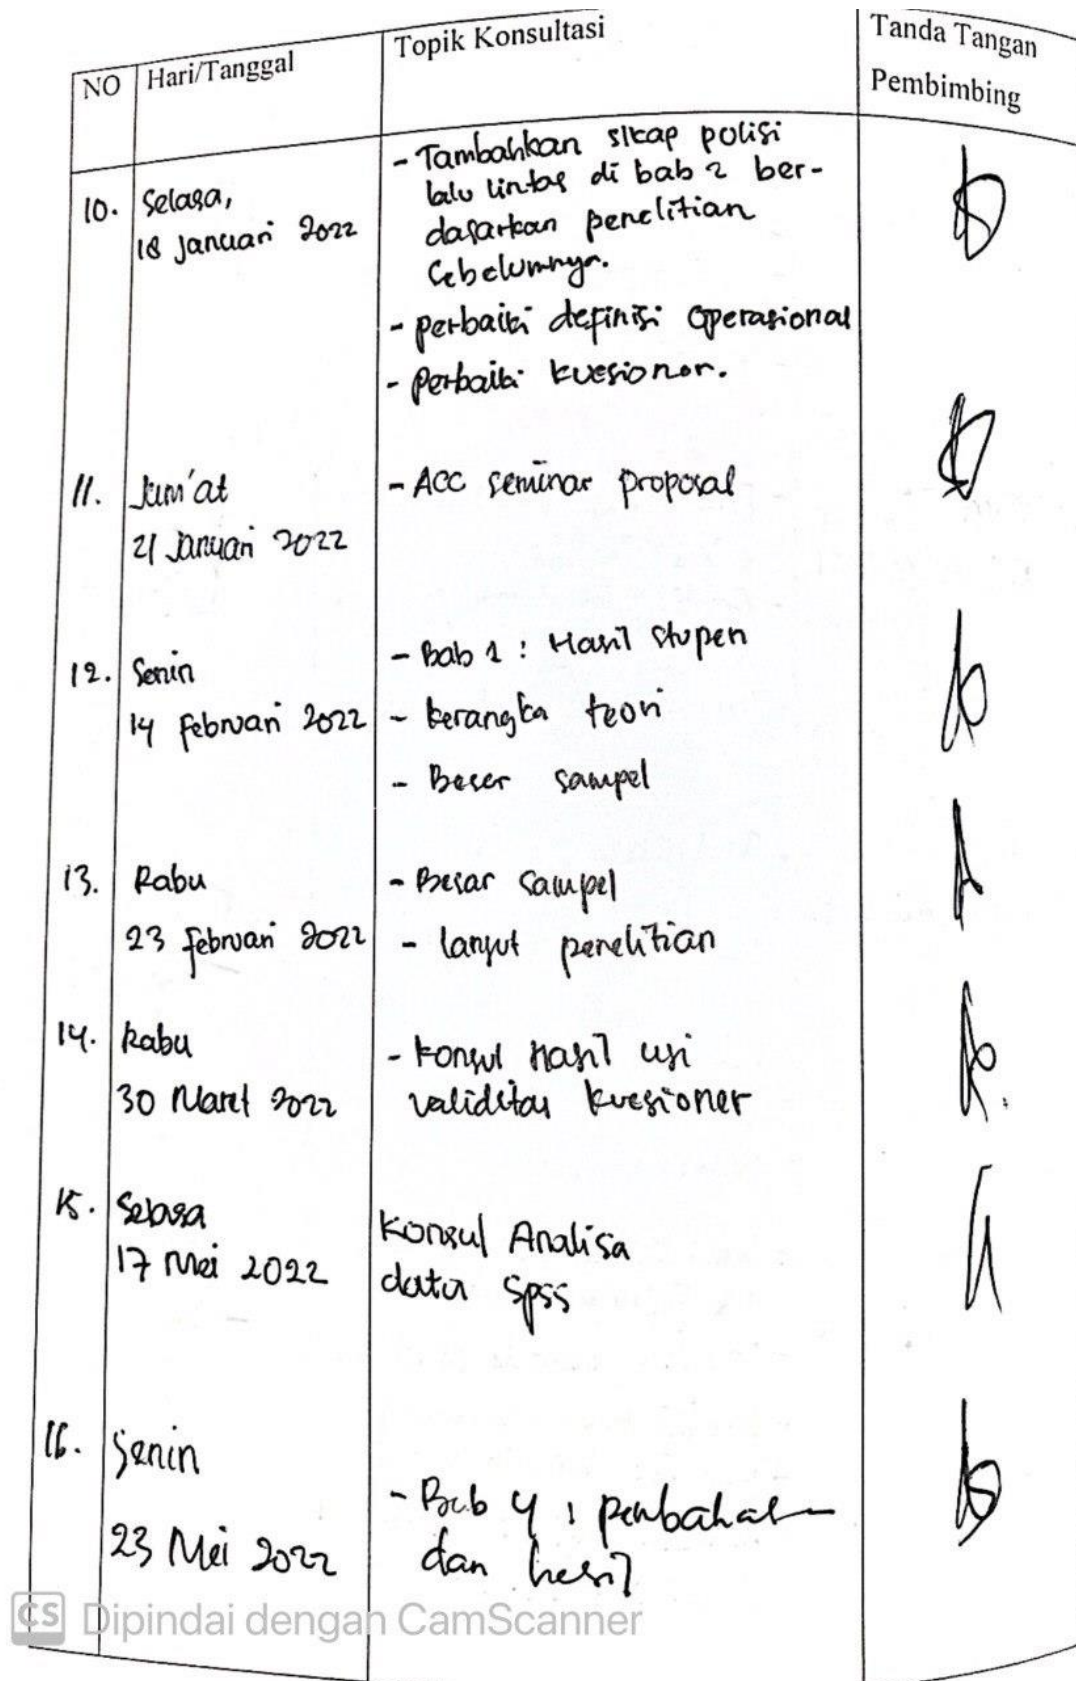 NO Hari/Tanggal Topik Konsultasi Tanda Tangan
Pembimbing
10. Selasa,
18 Januari 2022
- Tambahkan sikap polisi
lalu lintas di bab 2 ber-
dasarkan penelitian
sebelumnya.
- perbaiki definisi operasional
- Perbaiki kuesioner.
11. Jum'at
21 Januari 2022
- ACC seminar proposal
12. Senin
14 Februari 2022
- Bab 1 : Hasil stupen
- kerangka teori
- Besar sampel
13. Rabu
23 Februari 2022
- Besar sampel
- lanjut penelitian
14. Rabu
30 Maret 2022
- konsul hasil uji
validitas kuesioner
15. Selasa
17 Mei 2022
Konsul Analisa
data SPSS
16. Senin
23 Mei 2022
- Bab 4 : pembahasan
dan hasil
CS Dipindai dengan CamScanner